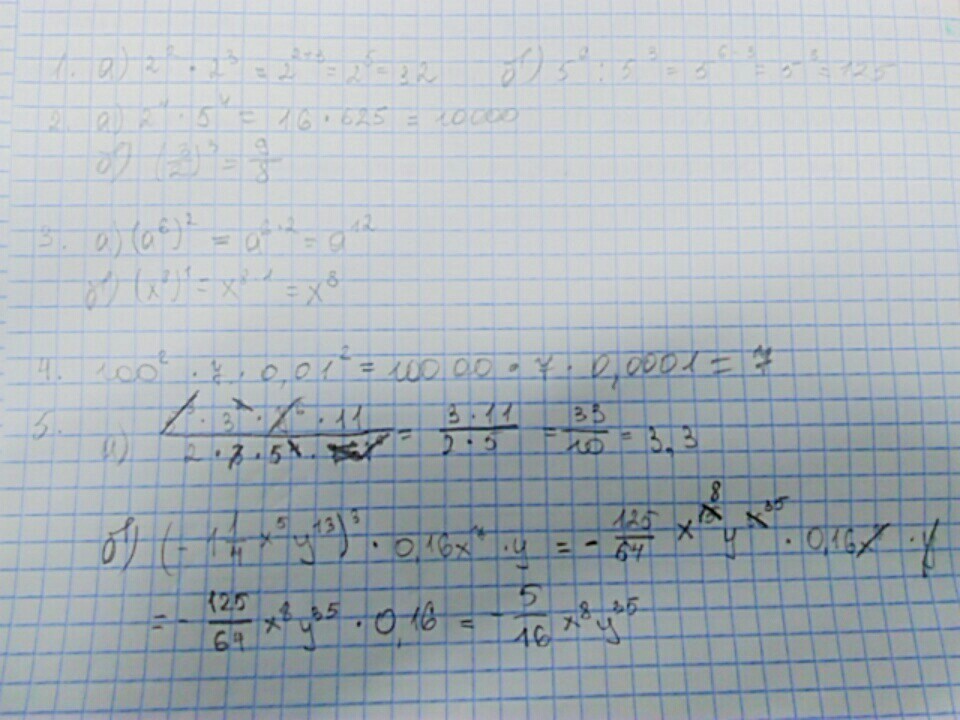 1. а) 2² · 2³ = 2²⁺³ = 2⁵ = 32 б) : 5³ = 5⁶⁻³ = 5³ = 125
2. а) 2⁴ · 5⁴ = 16 · 625 = 10000
б) (3/2)³ = 9/8
3. а) (a⁶)² = a⁶·² = a¹²
б) (x⁸)¹ = x⁸·¹ = x⁸
4. 100² · 7 · 0,01² = 10000 · 7 · 0,0001 = 7
5. а) = 3·11/2·5 = 33/10 = 3,3
б) (-1 1/4 x⁵y¹³)³ · 0,16x · y = - 125/64 x⁸ y³⁵ · 0,16x · y
= - 125/64 x⁸y³⁵ · 0,16 = - 5/16 x⁸y³⁵